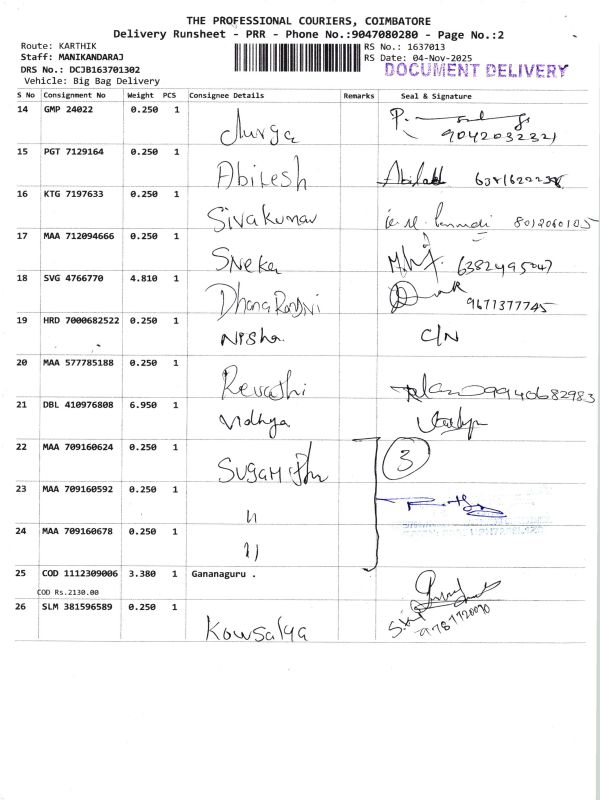 THE PROFESSIONAL COURIERS, COIMBATORE
Delivery Runsheet - PRR - Phone No.:9047080280 - Page No.:2
Route: KARTHIK
RS No.: 1637013
Staff: MANIKANDARAJ
RS Date: 04-Nov-2025
DRS No.: DCJB163701302
DOCUMENT DELIVERY
Vehicle: Big Bag Delivery
S No Consignment No Weight PCS Consignee Details Remarks Seal & Signature
14 GMP 24022 0.250 1 Durga P. 9042032321
15 PGT 7129164 0.250 1 Abilesh
16 KTG 7197633 0.250 1 Sivakumar 8012060105
17 MAA 712094666 0.250 1 Sneka 6382495047
18 SVG 4766770 4.810 1 9677377745
19 HRD 7000682522 0.250 1 Nisha C/N
20 MAA 577785188 0.250 1 Revathi 09940682983
21 DBL 410976808 6.950 1 Vidhya
22 MAA 709160624 0.250 1 3
23 MAA 709160592 0.250 1 "
24 MAA 709160678 0.250 1 "
25 COD 1112309006 3.380 1 Gananaguru .
COD Rs.2130.00
26 SLM 381596589 0.250 1 Kowsalya